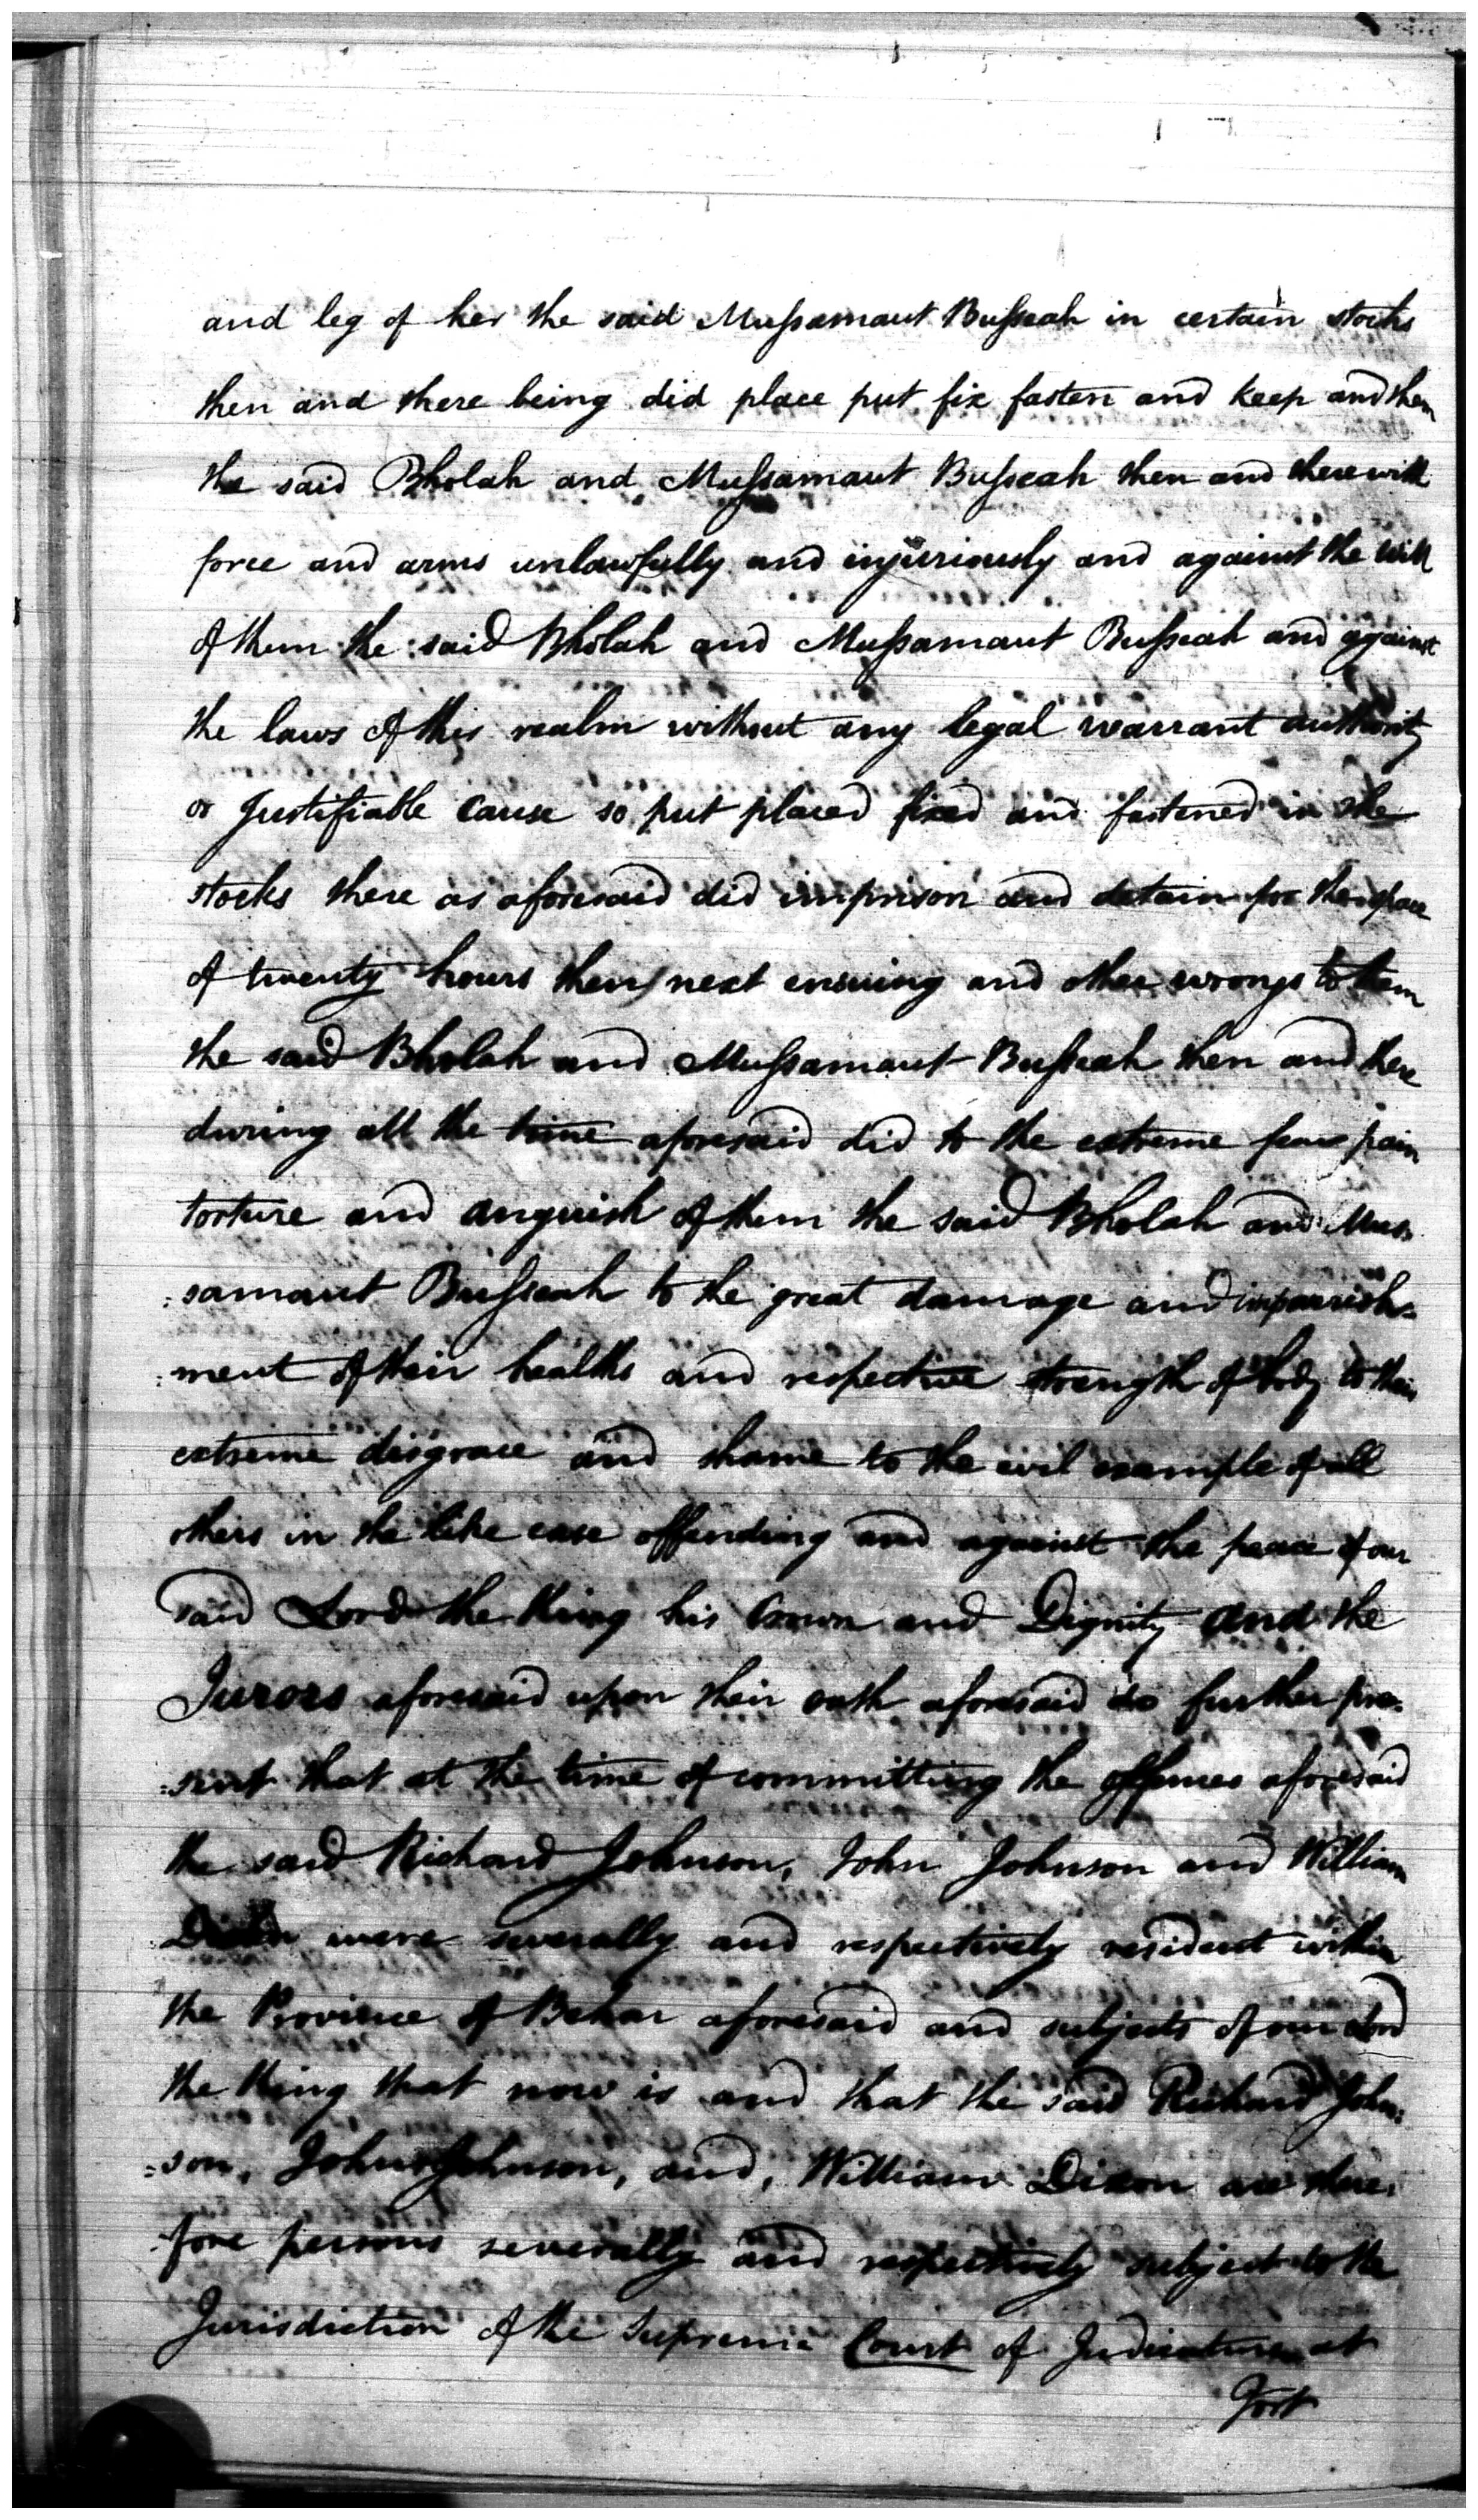 and leg of her the said Mussamaut Busseah in certain stocks
then and there being did place put fix fasten and keep and them
the said Bholah and Mussamaut Busseah then and there with
force and arms unlawfully and injuriously and against the will
of them the said Bholah and Mussamaut Busseah and against
the laws of this realm without any legal warrant authority
or Justifiable cause so put placed fixed and fastened in the
stocks there as aforesaid did imprison and detain for the space
of twenty hours then next ensuing and other wrongs to them
the said Bholah and Mussamaut Busseah then and there
during all the time aforesaid did to the extreme fear pain
torture and anguish of them the said Bholah and Mus-
:samaut Busseah to the great damage and impoverish-
:ment of their healths and respective strength of body to their
extreme disgrace and shame to the evil example of all
others in the like case offending and against the peace of our
said Lord the King his Crown and Dignity and the
Jurors aforesaid upon their oath aforesaid do further pre-
:sent that at the time of committing the offences aforesaid
the said Richard Johnson, John Johnson and William
Dixon were severally and respectively resident within
the Province of Behar aforesaid and subjects of our Lord
the King that now is and that the said Richard John:
=son, John Johnson, and, William Dixon are there:
-fore persons severally and respectively subject to the
Jurisdiction of the Supreme Court of Judicature at
Fort